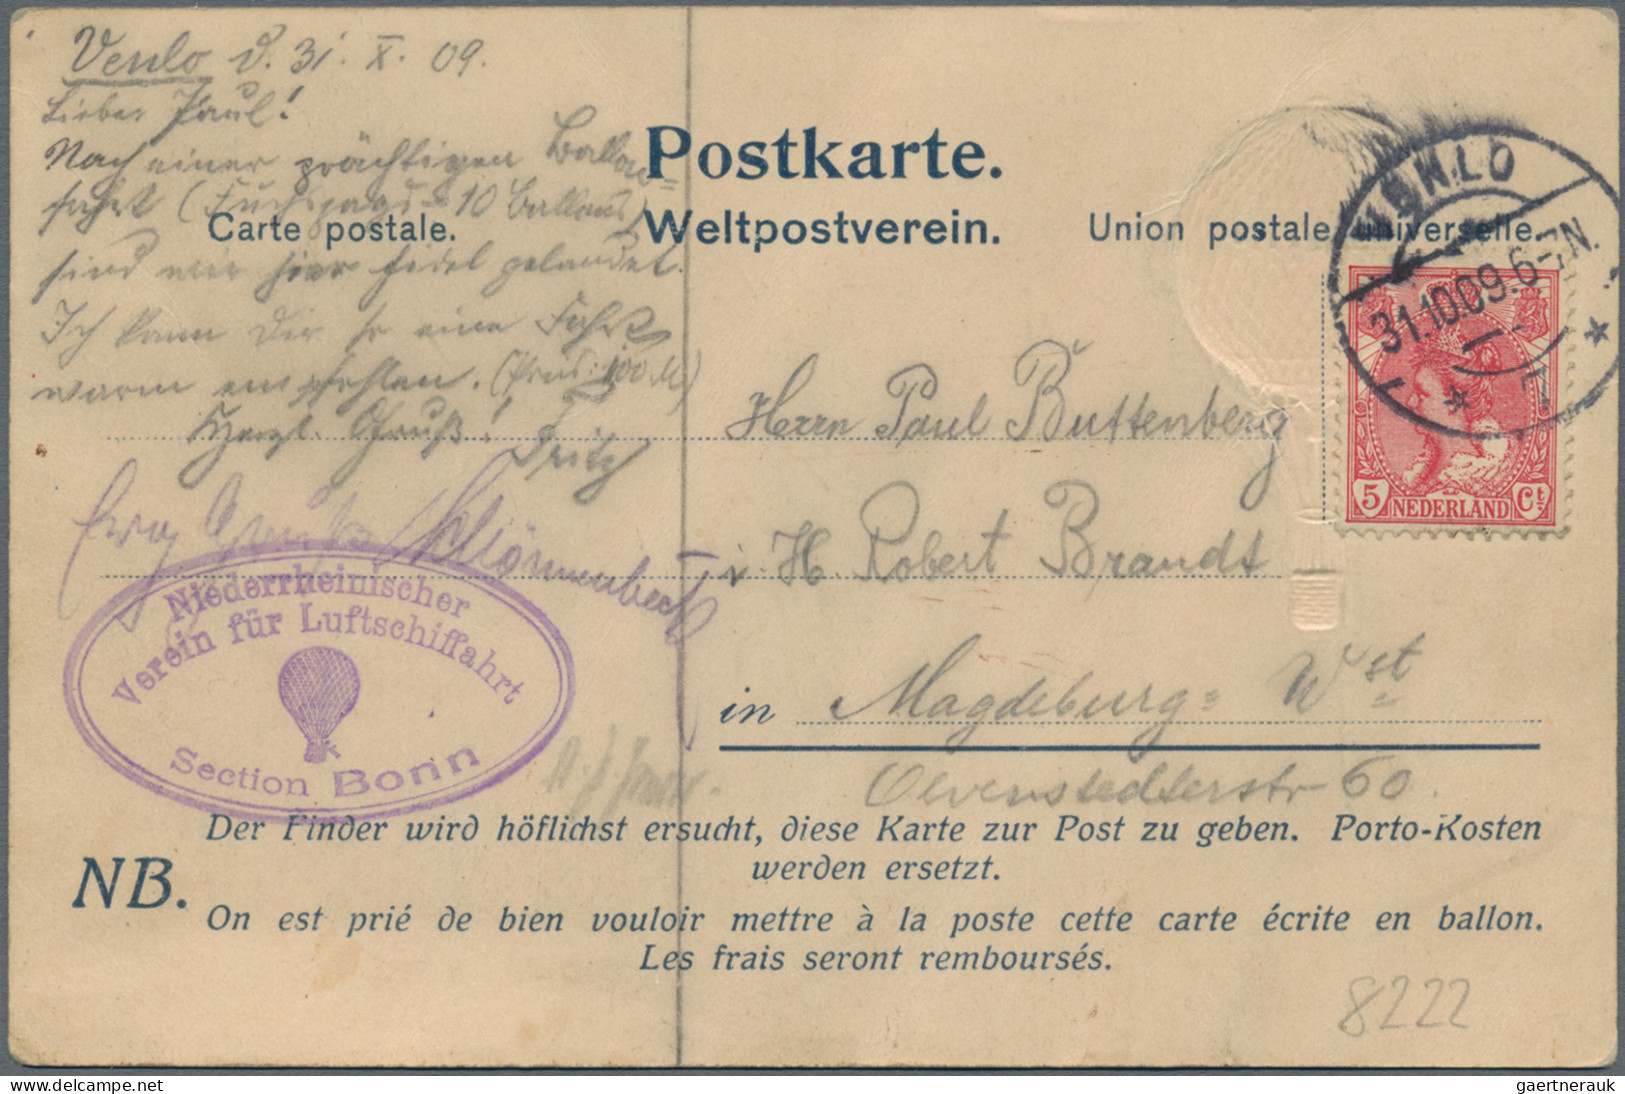 Venlo d. 31. X. 09.
Lieber Paul!
Nach einer prächtigen Ballon=
fahrt (Fuchsjagd 10 Ballons)
sind wir hier fidel gelandet.
Ich kann Dir so eine Fahrt
warm empfehlen. (Preis: 100 M)
Herzl. Gruß! Fritz
Postkarte.
Carte postale. Weltpostverein. Union postale universelle.
VENLO
31.10.09.6-7N.
5 NEDERLAND Ct
Herrn Paul Buttenberg
i. H. Robert Brandt
in Magdeburg= Wst
Olvenstedterstr 60.
Niederrheinischer
Verein für Luftschiffahrt
Section Bonn
NB.
Der Finder wird höflichst ersucht, diese Karte zur Post zu geben. Porto-Kosten
werden ersetzt.
On est prié de bien vouloir mettre à la poste cette carte écrite en ballon.
Les frais seront remboursés.
8222
www.philasearch.com
gaertnerauk